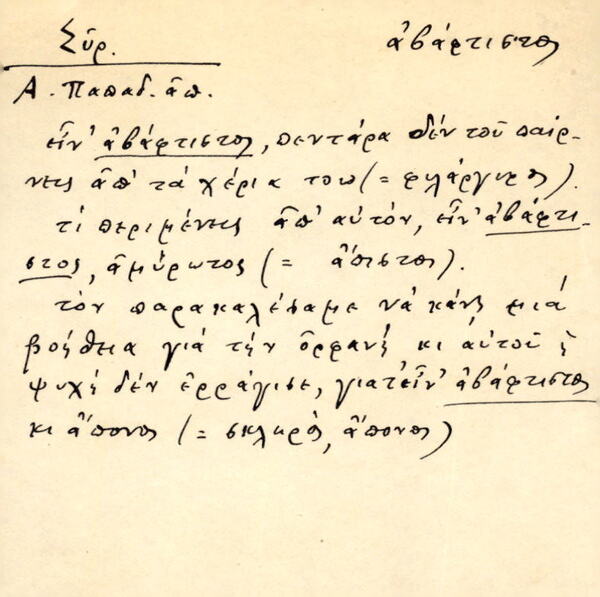 Σῦρ. ἀβάφτιστος
Α. Παπαδ. ἀπ.
εἶν' ἀβάφτιστος, πεντάρα δέν τοῦ παίρ-
νεις ἀπ' τά χέρια του (= φιλάργυρος).
τί περιμένεις ἀπ' αὐτόν, εἶν' ἀβάφτι-
στος, ἀμύρωτος (= ἄπιστος).
τόν παρακαλέσαμε νά κάνῃ μιά
βοήθεια γιά τήν ὀρφανή κι αὐτοῦ ἡ
ψυχή δέν ἐρράγισε, γιατ' εἶν' ἀβάφτιστος
κι ἄπονος (= σκληρός, ἄπονος)